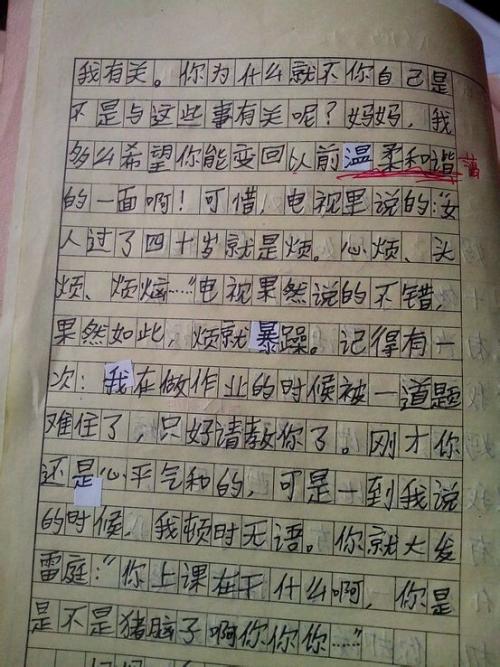 我有关。你为什么就不你自己是
不是与这些事有关呢？妈妈，我
多么希望你能变回以前温柔和谐
的一面啊！可惜，电视里说的："女
人过了四十岁就是烦。心烦、头
烦、烦恼……"电视果然说的不错，
果然如此，烦就暴躁。记得有一
次：我在做作业的时候被一道题
难住了，只好请教你了。刚才你
还是心平气和的，可是一到我说
的时候，我顿时无语。你就大发
雷庭："你上课在干什么啊，你是
是不是猪脑子啊你你你……"